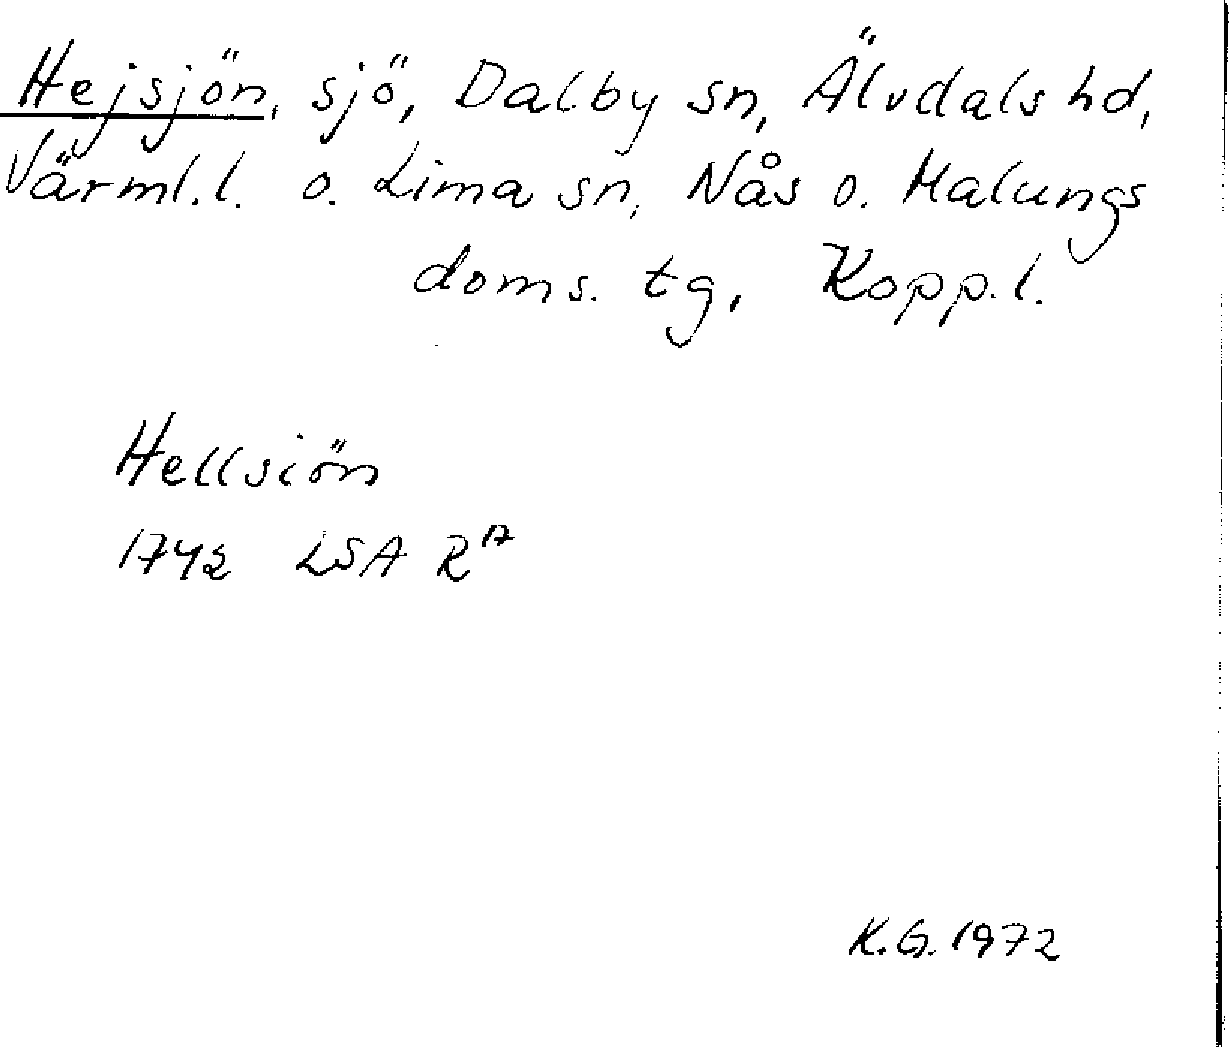 Hejsjön, sjö, Dalby sn, Älvdals hd,
Värml.l. o. Lima sn, Nås o. Malungs
doms. tg, Kopp.l.
Hellsiön
1742 LSA R17
K.G. 1972